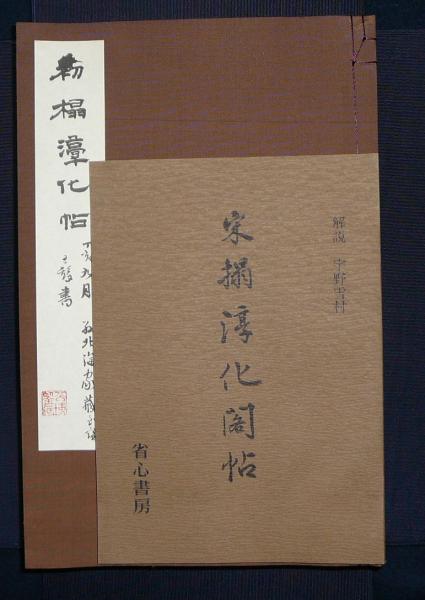 宋搨淳化閣帖
解説　宇野雪村
省心書房
勅搨淳化帖
丁亥九月
書